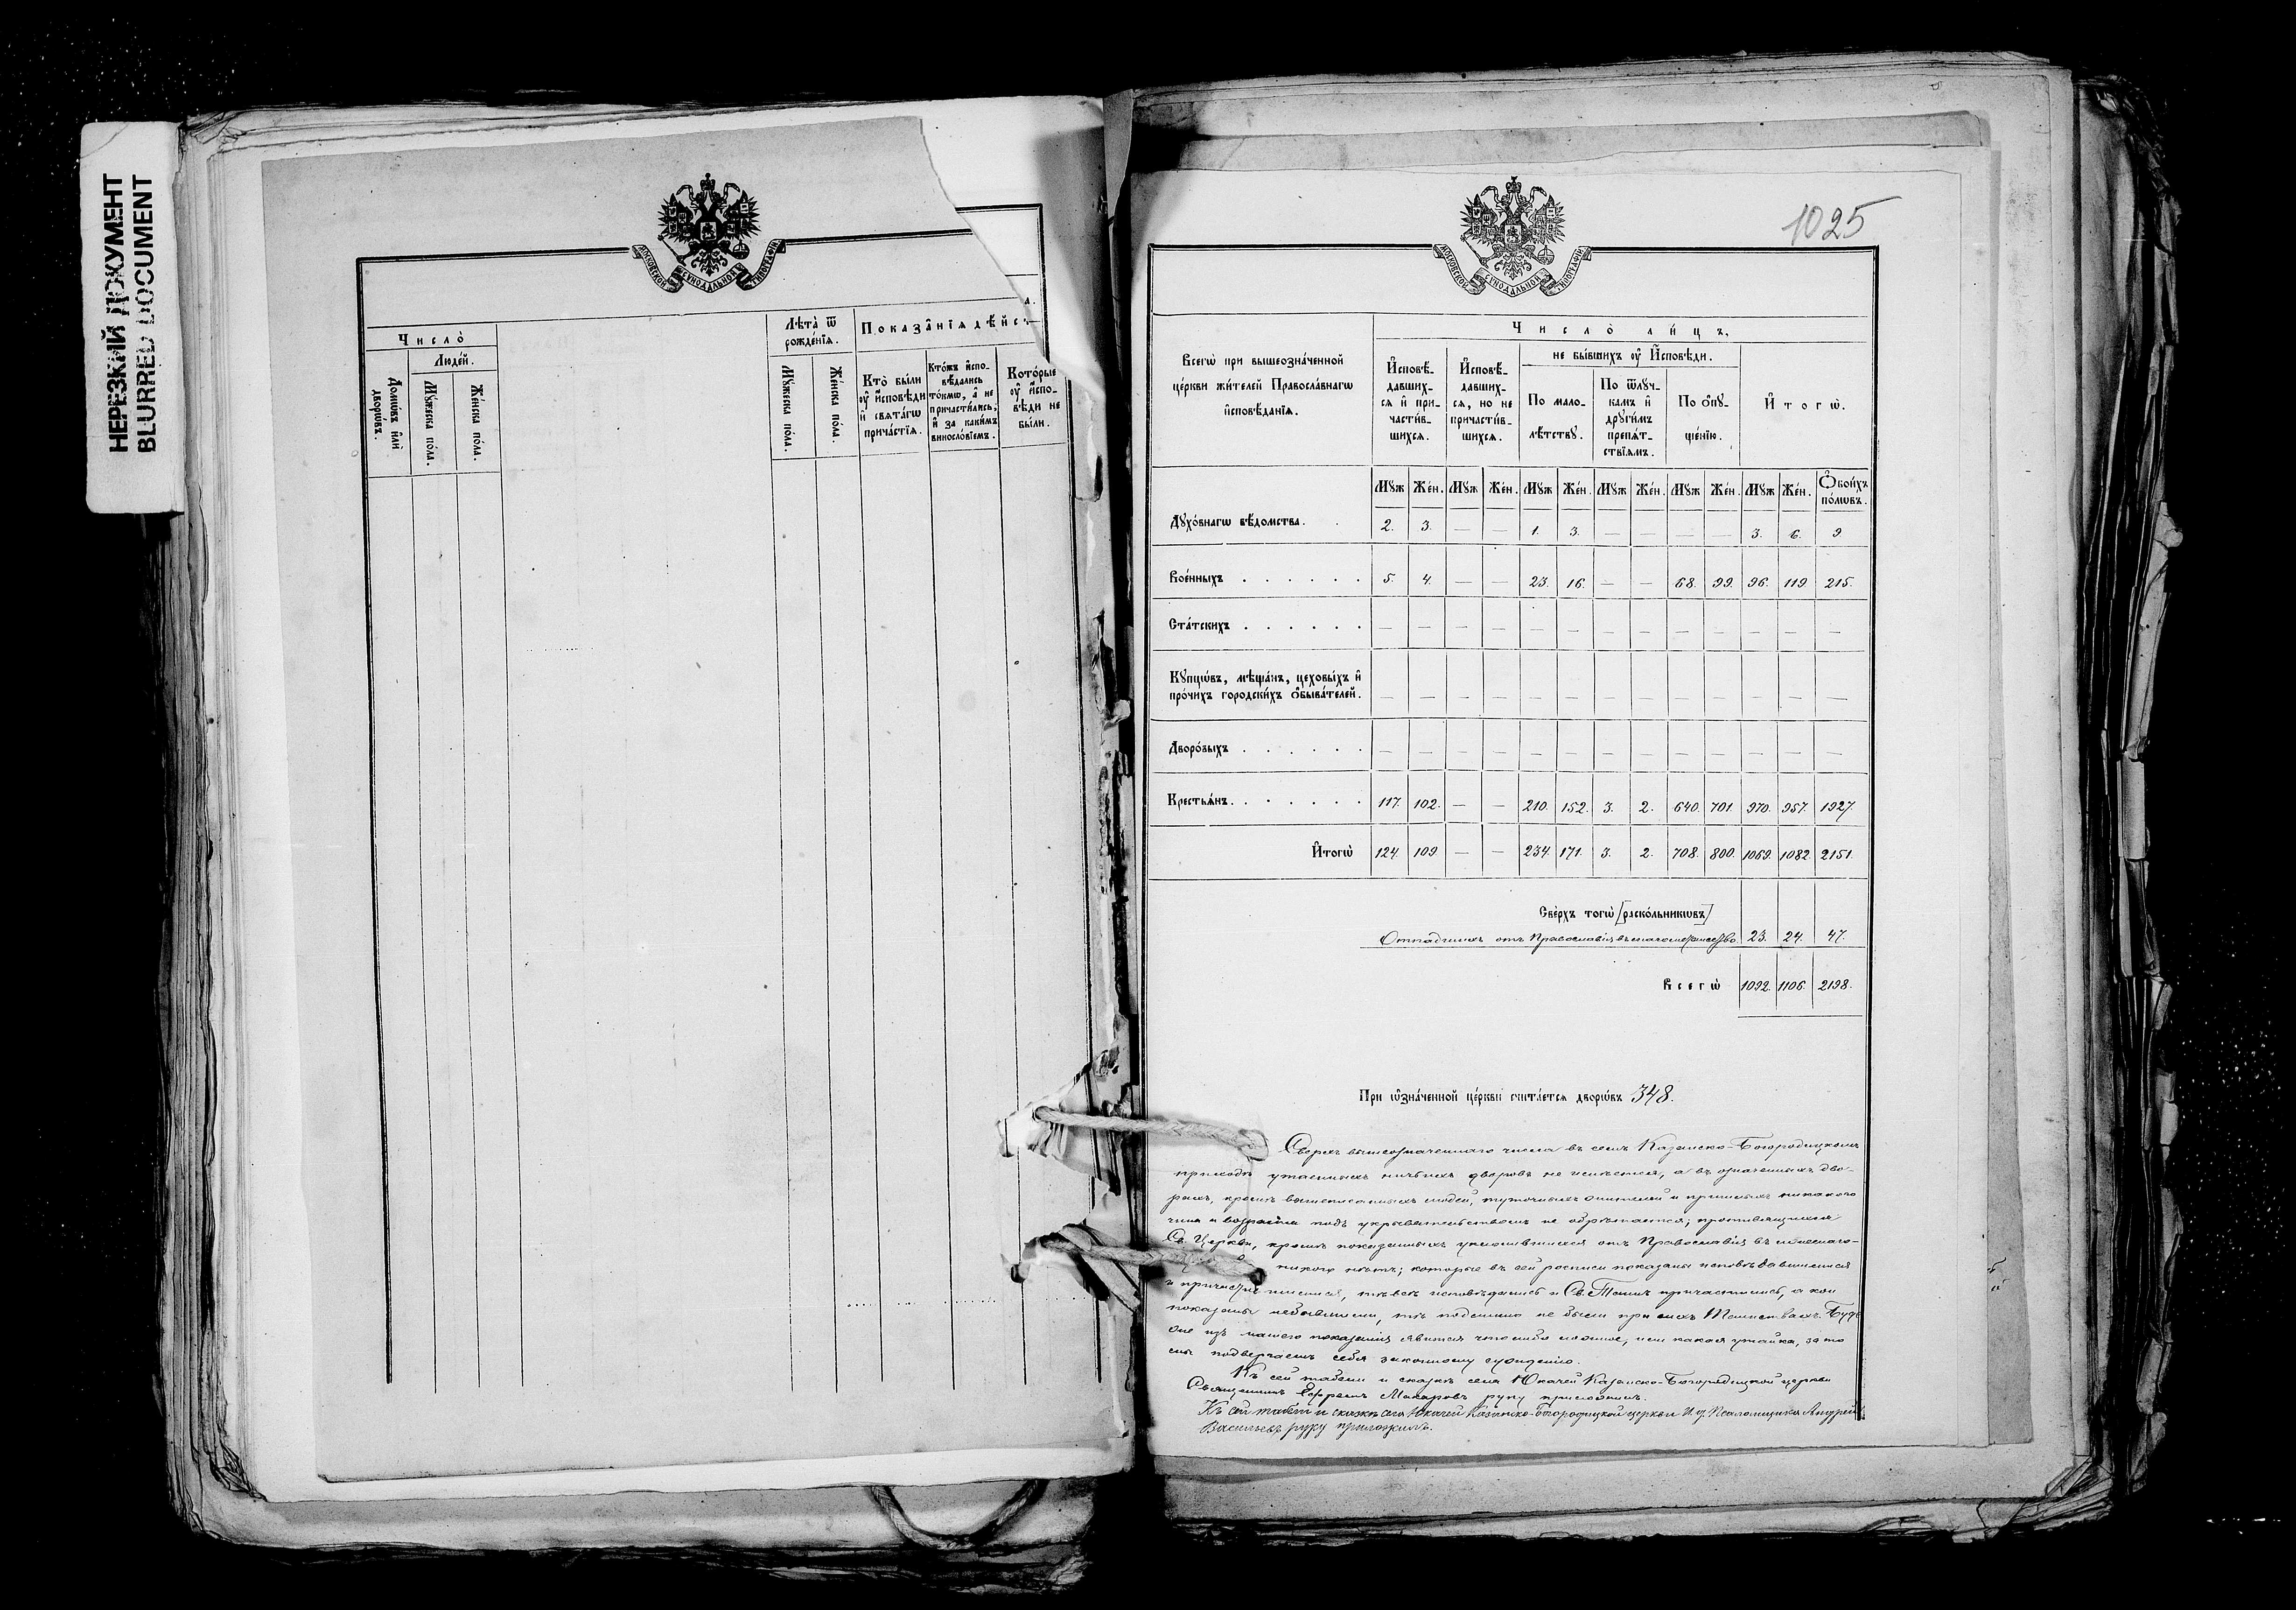 НЕРЕЗКИЙ ДОКУМЕНТ
BLURRED DOCUMENT
МОСКОВСКОЙ СѴНОДАЛЬНОЙ ТИПОГРАФІИ
Число̀
Люде́й.
Домѡ́въ и҆лѝ дворѡ́въ.
Мꙋ́жеска по́ла.
Же́нска по́ла.
Лѣта̀ ѿ рожде́нїѧ.
Мꙋ́жеска по́ла.
Же́нска по́ла.
Показа̑нїѧ дѣ́йст
Кто̀ бы́ли ᲂу҆ и҆́сповѣди и҆ свѧта́гѡ прича́стїѧ.
Кто́жъ и҆спо-
вѣ́дались
то́кмѡ, а҆ не
причасти́лись,
и҆ за каки́мъ
винносло́вїемъ.
Кото́рые
ᲂу҆ и҆́спо-
вѣди не
бы́ли.
1025
МОСКОВСКОЙ СѴНОДАЛЬНОЙ ТИПОГРАФІИ
Всегѡ̀ при вышеозна́ченной
це́ркви жи́телей Правосла́внагѡ
и҆сповѣ́данїѧ.
Число̀ ли́цъ.
И҆сповѣ́-
давших-
сѧ и҆ при-
части́в-
шихсѧ.
И҆сповѣ́-
давших-
сѧ, но не
причасти́в-
шихсѧ.
не бы́вшихъ ᲂу҆ И҆́сповѣди.
По мало-
лѣ́тствꙋ.
По ѿлꙋч-
камъ и҆
дрꙋги̑мъ
препѧ́т-
ствїѧмъ.
По ѻ҆пꙋ-
ще́нїю.
И҆тогѡ̀.
Мꙋж Же́н. Мꙋж Же́н. Мꙋж Же́н. Мꙋж Же́н. Мꙋж Же́н. Мꙋж Же́н. Ѻ҆бои́хъ по́лѡвъ.
Дꙋхо́внагѡ вѣ́домства. 2. 3. — — 1. 3. — — — — 3. 6. 9
Вое́нныхъ . . . . . . 5. 4. — — 23. 16. — — 68. 99. 96. 119 215.
Ста́тскихъ . . . . . . — — — — — — — — — — — — —
Кꙋпцѡ́въ, мѣща́нъ, цеховы́хъ и҆
про́чихъ городски́хъ ѻ҆быва́телей. — — — — — — — — — — — — —
Дворо́выхъ . . . . . . — — — — — — — — — — — — —
Крестьѧ́нъ. . . . . . . 117. 102. — — 210. 152. 3. 2. 640. 701. 970. 957. 1927.
И҆тогѡ̀ 124. 109. — — 234. 171. 3. 2. 708. 800. 1069. 1082. 2151.
Све́рхъ тогѡ̀ [раско́льникѡвъ]
Отпадшихъ отъ Православія въ магометанство 23. 24. 47.
Всегѡ̀ 1092. 1106. 2198.
При ѡ҆зна́ченной це́ркви счита́етсѧ дворѡ́въ 348.
Сверхъ вышеозначеннаго числа въ семъ Казанско-Богородицкомъ
приходѣ утаенныхъ ничьихъ дворовъ не имѣется, а въ означенныхъ дво-
рахъ, кромѣ вышеписанныхъ людей, и пришлыхъ никакого
чина и возраста подъ укрывательствомъ не обрѣтается; противящихся
Св. Церкви, кромѣ показанныхъ уклонившихся отъ Православія въ
никого нѣтъ; которые въ сей росписи показаны исповѣдавшимися
и причастившимися, тѣ всѣ исповѣдались и Св. Таинъ причастились, а кои
показаны небывшими, тѣ подлинно не были при сихъ Таинствахъ. Буде
изъ нашего показанія явится что либо ложное, или какая утайка, за то
мы подвергаемъ себя законному сужденію.
Къ сей табели и сказкѣ села Юкачей Казанско-Богородицкой церкви
Священникъ Ефремъ Макаровъ руку приложилъ.
Къ сей табели и сказкѣ села Юкачей Казанско-Богородицкой церкви И. д. Псаломщика Андрей
Васильевъ руку приложилъ.